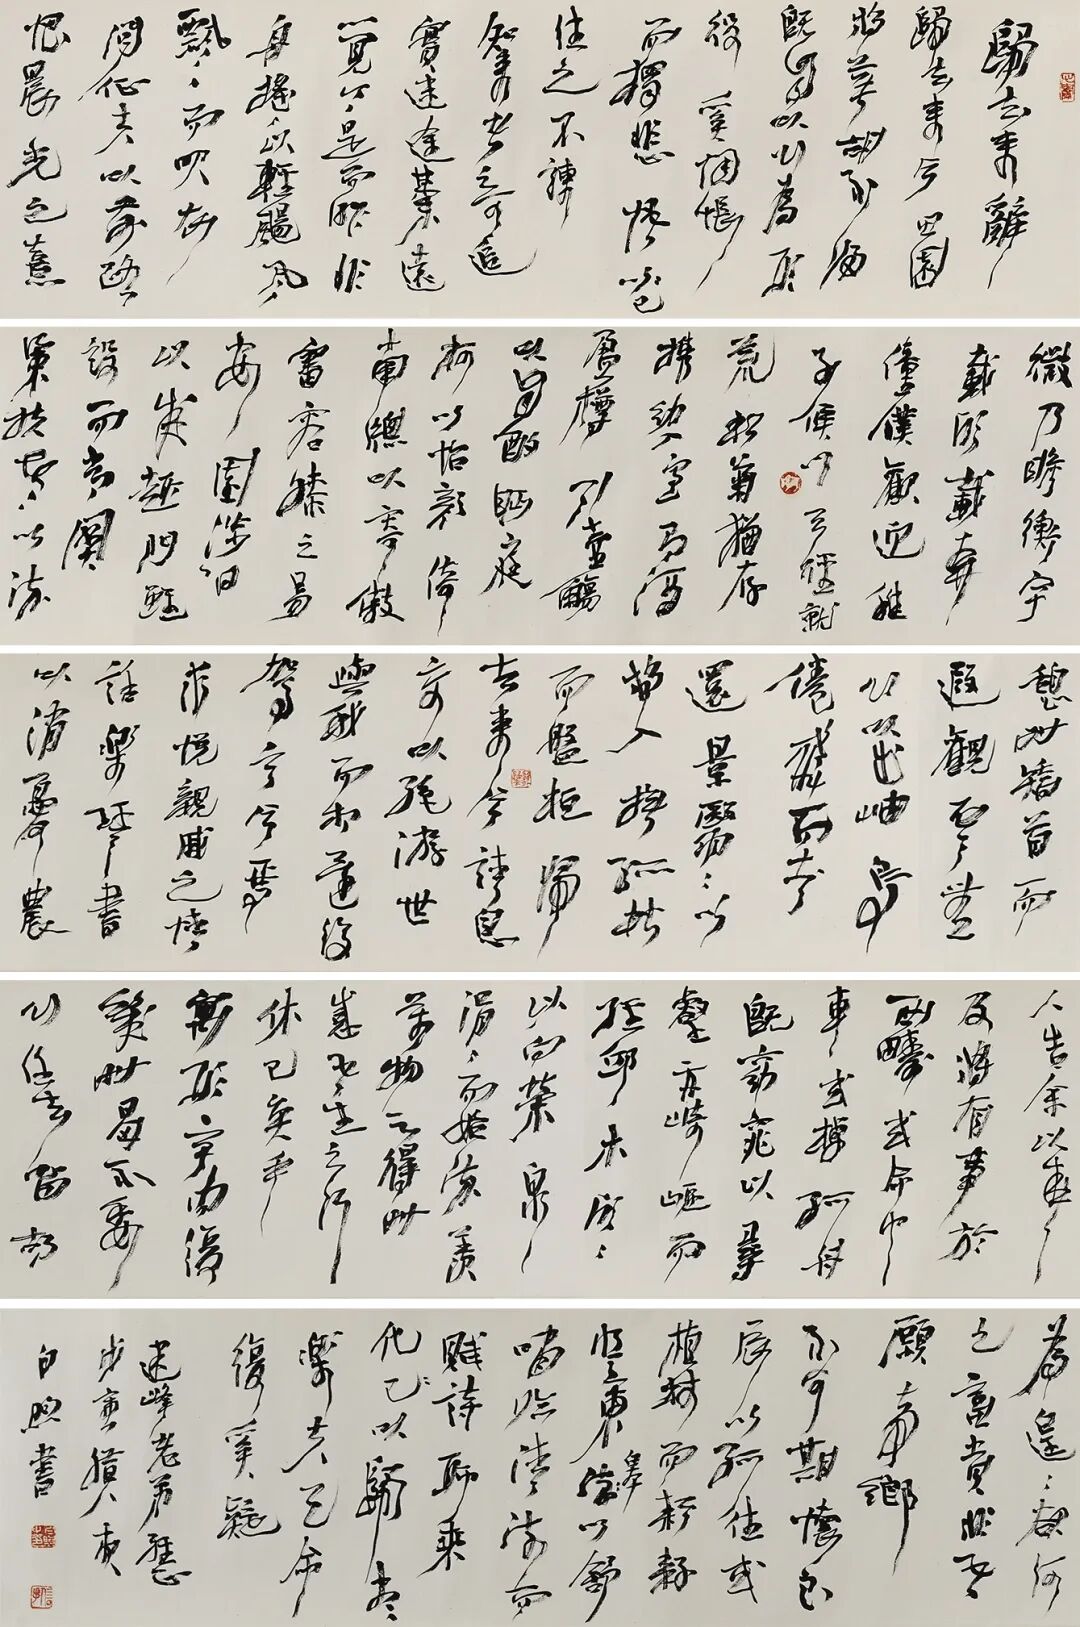 歸去來辭
歸去來兮田園
將蕪胡不歸
既自以心為形
役奚惆悵
而獨悲悟已
往之不諫
知來者之可追
實迷途其未遠
覺今是而昨非
舟搖搖以輕颺風
飄飄而吹衣
問征夫以前路
恨晨光之熹
微乃瞻衡宇
載欣載奔
僮僕歡迎稚
子候門三徑就
荒松菊猶存
攜幼入室有酒
盈樽引壺觴
以自酌眄庭
柯以怡顏倚
南窗以寄傲
審容膝之易
安園涉日
以成趣門雖
設而常關
策扶老以流
憩時矯首而
遐觀雲無
心以出岫鳥
倦飛而知
還景翳翳以
將入撫孤松
而盤桓歸
去來兮請息
交以絕游世
與我而相違復
駕言兮焉
求悅親戚之情
話樂琴書
以消憂農
人告余以春
及將有事於
西疇或命巾
車或棹孤舟
既窈窕以尋
壑亦崎嶇而
經邱木欣欣
以向榮泉
涓涓而始流羨
萬物之得時
感吾生之行
休已矣乎
寓形宇內復
幾時曷不委
心任去留胡
為遑遑欲何
之富貴非吾
願帝鄉
不可期懷良
辰以孤往或
植杖而耘耔
登東皋以舒
嘯臨清流而
賦詩聊乘
化以歸盡
樂夫天命
復奚疑
建峰老弟
書